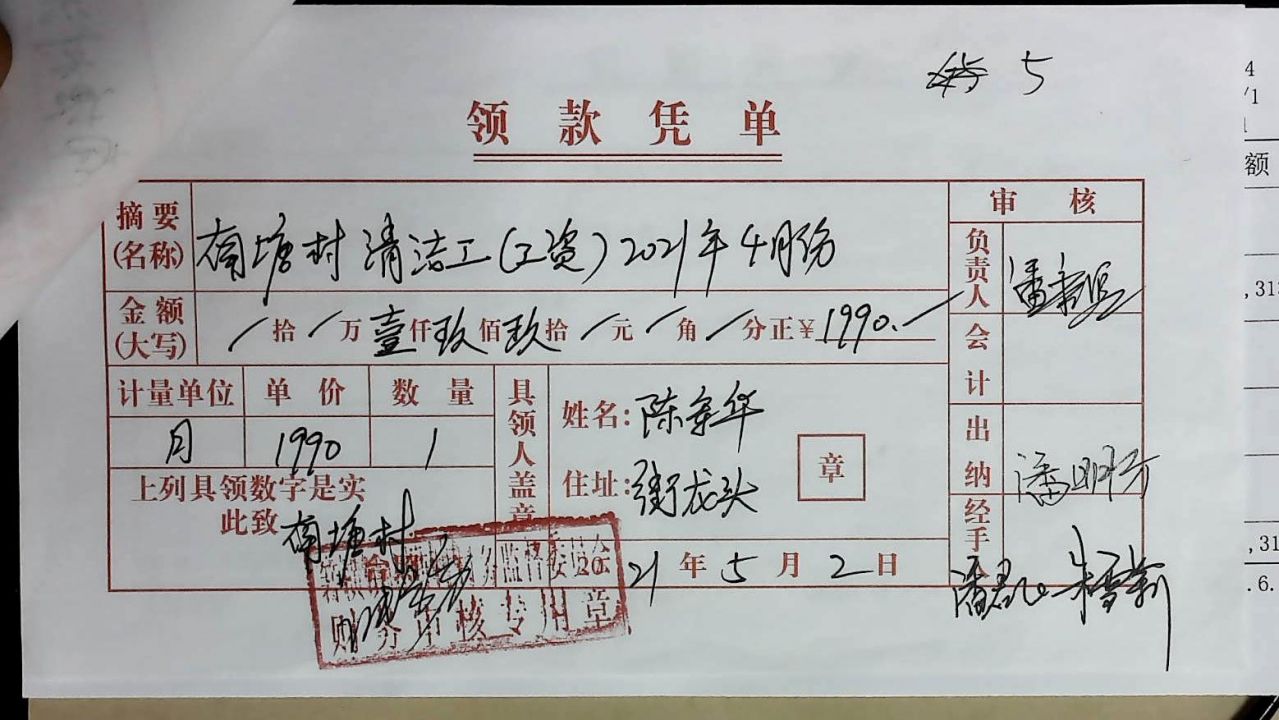 5
领款凭单
摘要(名称) 南塘村清洁工(工资)2021年4月份
审核
负责人
金额(大写) / 拾 / 万 壹 仟 玖 佰 玖 拾 / 元 / 角 / 分正 ¥ 1990.—
会计
计量单位 单价 数量
月 1990 1
具领人盖章
姓名:陈
住址:街龙头
章
出纳 潘明
上列具领数字是实
此致 南塘村
2021年5月2日
经手
财务审核专用章
4
/1
1
额
,31
,31
.6.